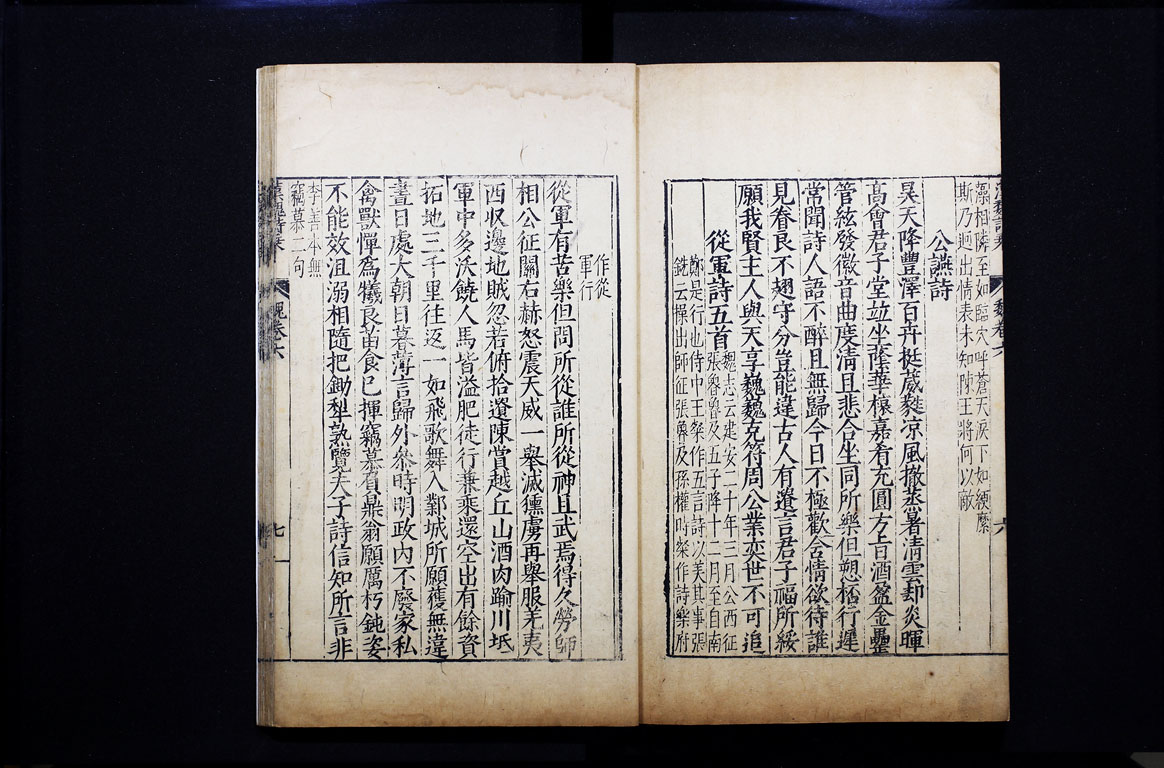 藻相隣至如臨穴呼蒼天淚下如綆縻
斯乃迥出情表未知陳王將何以敵
公讌詩
昊天降豐澤百卉挺葳蕤凉風撤蒸暑清雲却炎暉
高會君子堂竝坐蔭華榱嘉肴充圓方旨酒盈金罍
管絃發徽音曲度清且悲合坐同所樂但愬杯行遲
常聞詩人語不醉且無歸今日不極歡含情欲待誰
見眷良不翅守分豈能違古人有遺言君子福所綏
願我賢主人與天享巍巍克符周公業奕世不可追
從軍詩五首
魏志云建安二十年三月公西征
張魯魯及五子降十二月至自南
鄭是行也侍中王粲作五言詩以美其事張
銑云操出師征張魯及孫權時粲作詩樂府
魏卷六
六
作從
軍行
從軍有苦樂但問所從誰所從神且武焉得久勞師
相公征關右赫怒震天威一舉滅獯虜再舉服羌夷
西収邊地賊忽若俯拾遺陳賞越丘山酒肉踰川坻
軍中多沃饒人馬皆溢肥徒行兼乘還空出有餘資
拓地三千里往返一如飛歌舞入鄴城所願獲無違
晝日處大朝日暮薄言歸外參時明政内不廢家私
禽獸憚為犧良苗食已揮竊慕負鼎翁願厲朽鈍姿
不能效沮溺相隨把鋤犂熟覽夫子詩信知所言非
李善本無
竊慕二句
魏卷六
七